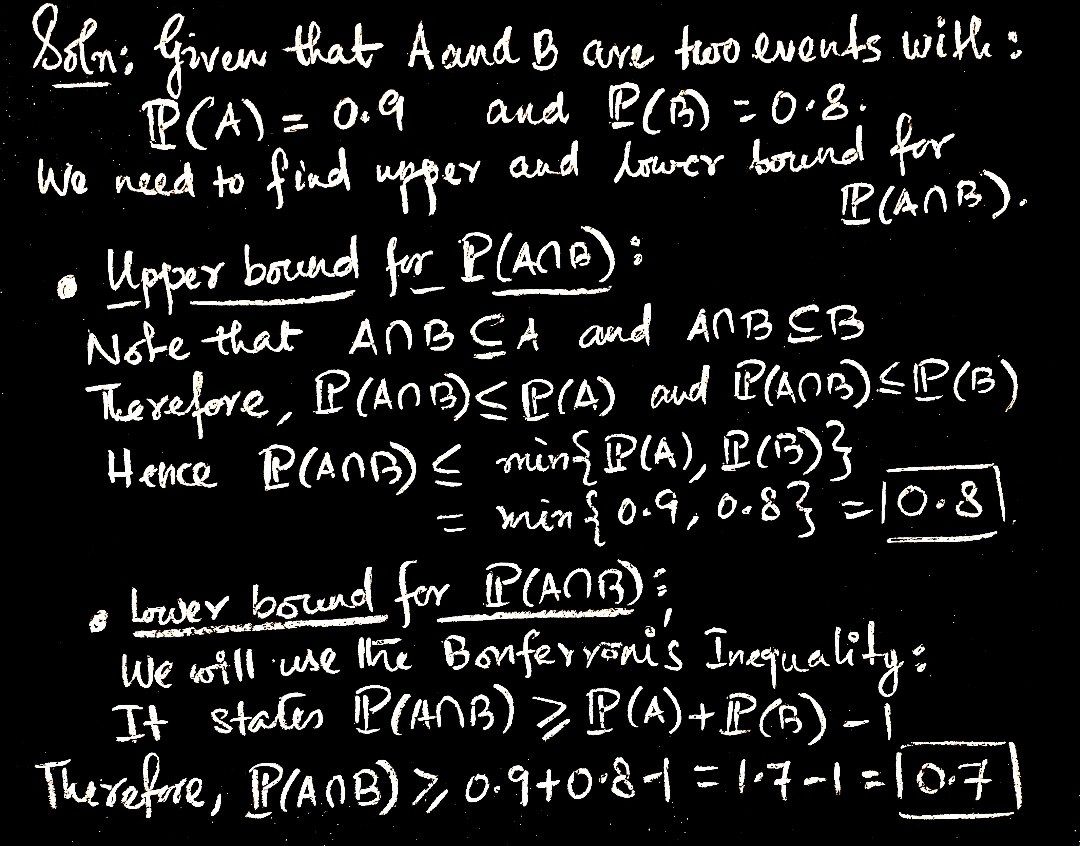 Soln: Given that A and B are two events with:
ℙ(A) = 0.9 and ℙ(B) = 0.8.
We need to find upper and lower bound for
ℙ(A∩B).
• Upper bound for ℙ(A∩B):
Note that A∩B ⊆ A and A∩B ⊆ B
Therefore, ℙ(A∩B) ≤ ℙ(A) and ℙ(A∩B) ≤ ℙ(B)
Hence ℙ(A∩B) ≤ min{ℙ(A), ℙ(B)}
= min{0.9, 0.8} = 0.8.
• Lower bound for ℙ(A∩B):
We will use the Bonferroni's Inequality:
It states ℙ(A∩B) ⩾ ℙ(A) + ℙ(B) - 1
Therefore, ℙ(A∩B) ⩾ 0.9+0.8-1 = 1.7-1 = 0.7